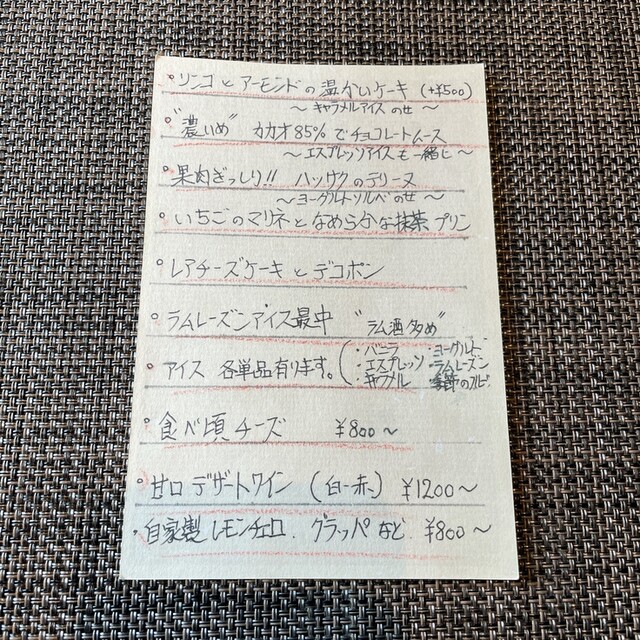 • リンゴとアーモンドの温かいケーキ (+¥500)
〜 キャラメルアイス のせ 〜
• "濃いめ" カカオ85%でチョコレートムース
〜エスプレッソアイスも一緒に〜
• 果肉ぎっしり!! ハッサクのテリーヌ
〜ヨーグルトソルベのせ 〜
• いちごのマリネとなめらかな抹茶プリン
• レアチーズケーキとデコポン
• ラムレーズンアイス最中 "ラム酒多め"
• アイス 各単品有ります。
・バニラ ・ヨーグルト
・エスプレッソ ・ラムレーズン
・キャラメル ・季節のソルベ
• 食べ頃チーズ ¥800〜
• 甘口デザートワイン (白・赤) ¥1200〜
• 自家製レモンチェロ. グラッパなど. ¥800〜